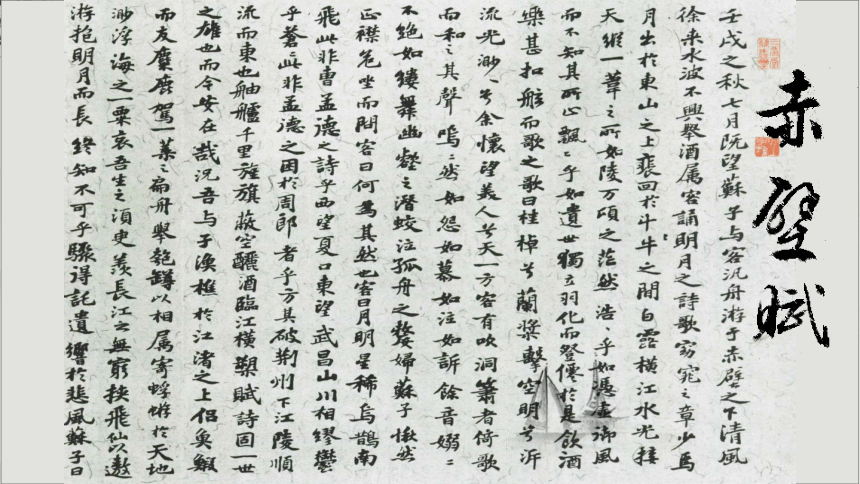 赤壁賦
壬戌之秋七月既望蘇子与客汎舟游于赤壁之下清風
徐来水波不興舉酒属客誦明月之詩歌窈窕之章少焉
月出於東山之上裵回於斗牛之間白露横江水光接
天縱一葦之所如陵万頃之茫然浩〻乎如馮虛御風
而不知其所止飄〻乎如遺世獨立羽化而登僊於是飲酒
樂甚扣舷而歌之歌曰桂棹兮蘭槳擊空明兮泝
流光渺〻兮余懷望美人兮天一方客有吹洞簫者倚歌
而和之其聲嗚〻然如怨如慕如泣如訴餘音嫋〻
不絶如縷舞幽壑之潜蛟泣孤舟之嫠婦蘇子愀然
正襟危坐而問客曰何為其然也客曰月明星稀烏鵲南
飛此非曹孟德之詩乎西望夏口東望武昌山川相繆鬱
乎蒼〻此非孟德之困於周郎者乎方其破荆州下江陵順
流而東也舳艫千里旌旗蔽空釃酒臨江横槊賦詩固一世
之雄也而今安在哉况吾与子漁樵於江渚之上侣魚鰕
而友麋鹿駕一葉之扁舟舉匏罇以相属寄蜉蝣於天地
渺浮海之一粟哀吾生之須臾羨長江之無窮挾飛仙以遨
游抱明月而長終知不可乎驟得託遺響於悲風蘇子曰